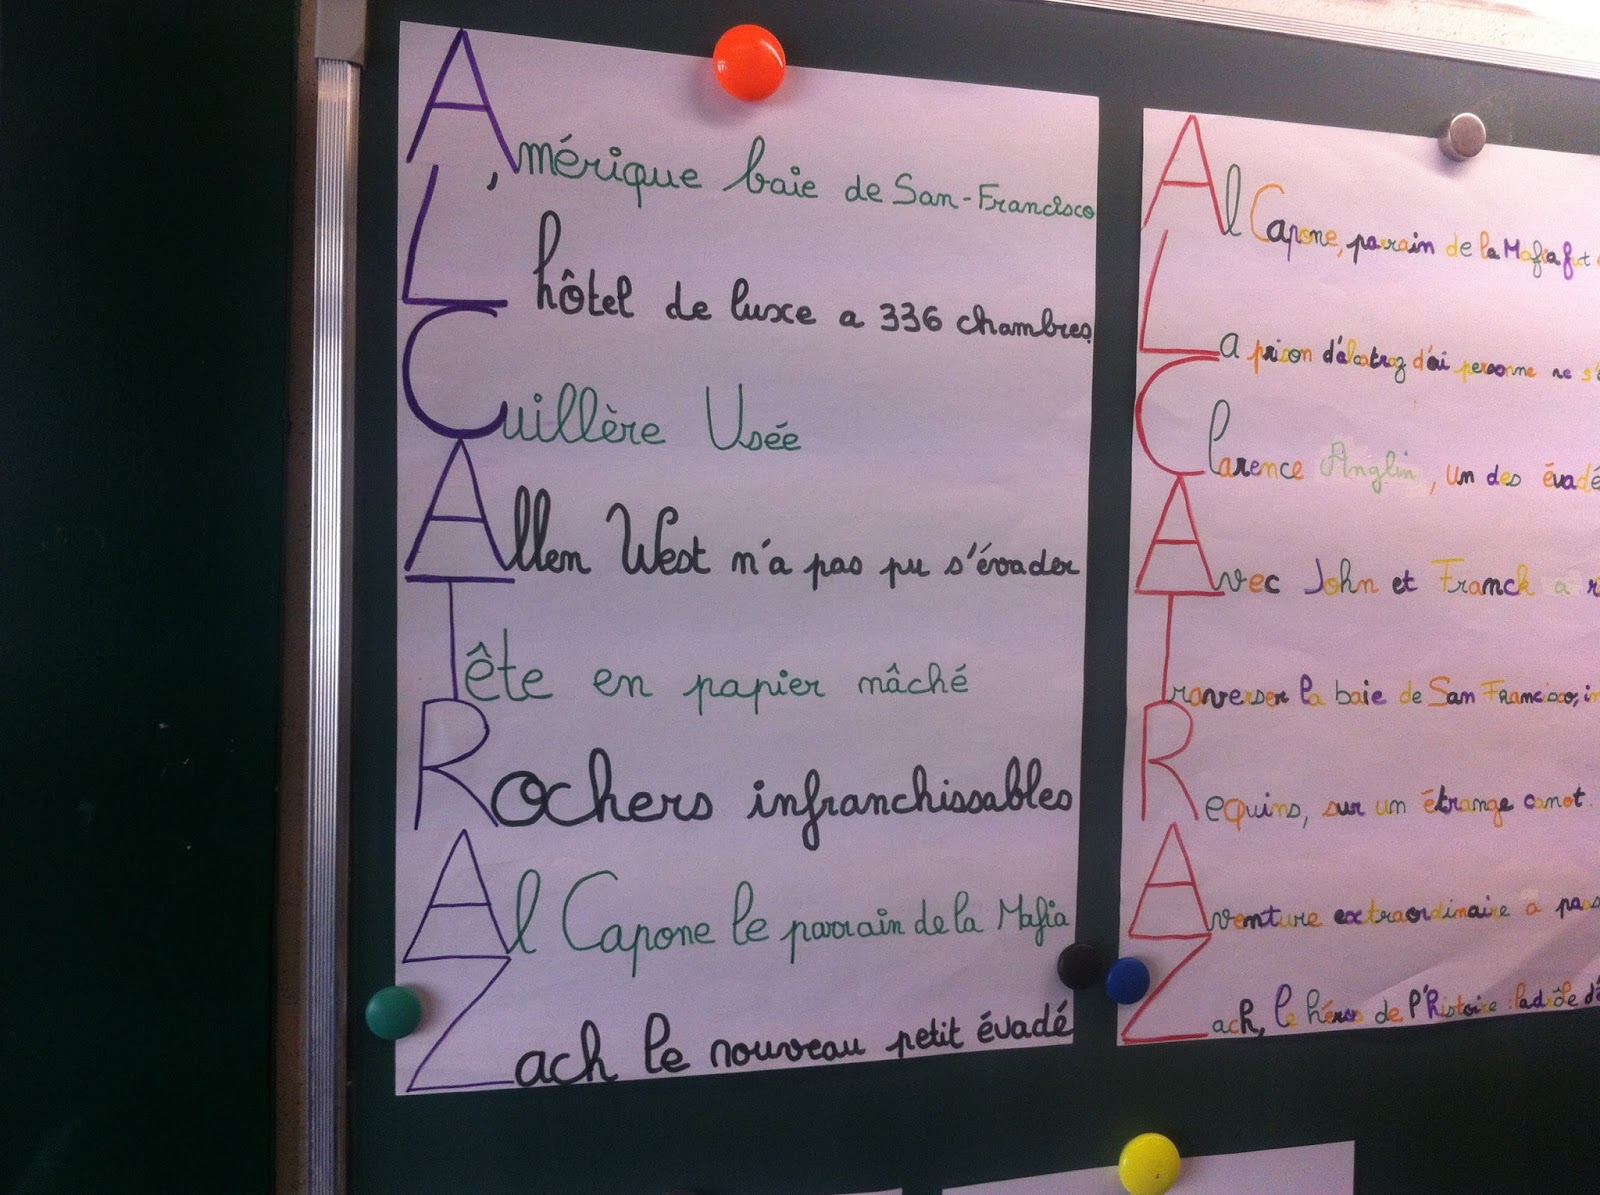 Amérique baie de San-Francisco
L'hôtel de luxe a 336 chambres
Cuillère Usée
Allen West n'a pas pu s'évader
Tête en papier mâché
Rochers infranchissables
Al Capone le parrain de la Mafia
Zach le nouveau petit évadé
Al Capone, parrain de la Mafia fut
La prison d'alcatraz d'où personne ne s'
Clarence Anglin, un des évadé
Avec John et Franck a r
Traverser la baie de San Francisco, in
Requins, sur un étrange canot.
Aventure extraordinaire a pas
Zach, le héros de l'histoire : la drôle d'